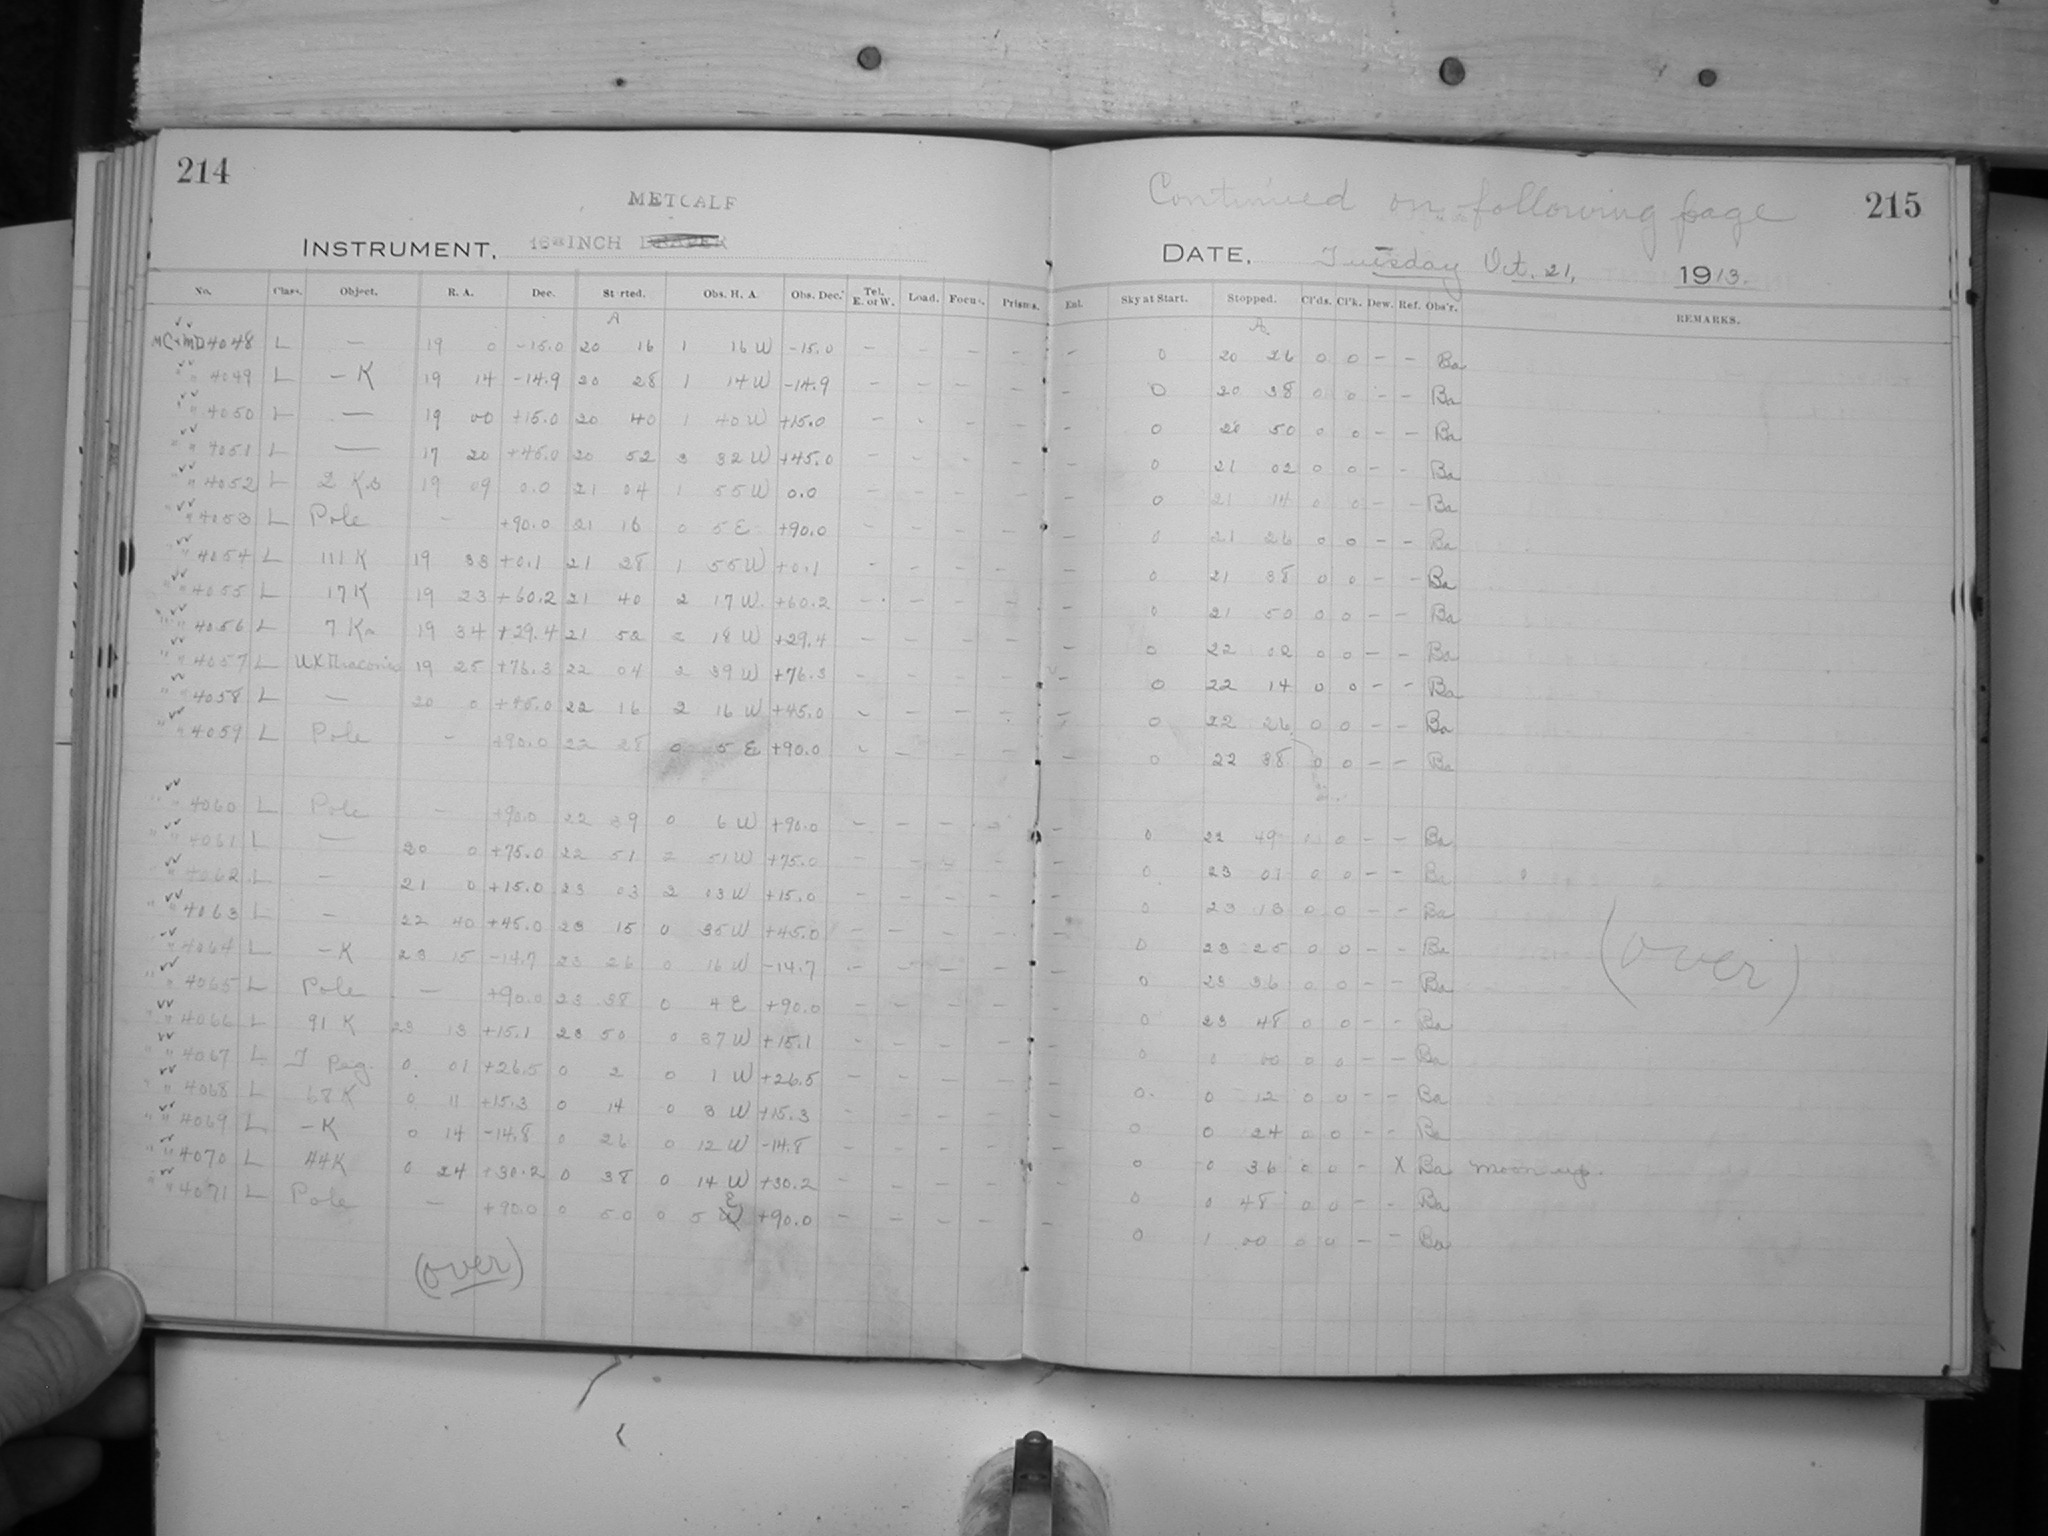 214
METCALF
INSTRUMENT, 16 INCH DRAPER
No. Class. Object. R. A. Dec. Started. Obs. H. A. Obs. Dec. Tel. E. or W. Load. Focus. Prisms.
A
MC+MD4048 L — 19 0 -15.0 20 16 1 16 W -15.0 — — — —
" " 4049 L — K 19 14 -14.9 20 28 1 14 W -14.9 — — — —
" " 4050 L — 19 00 +15.0 20 40 1 40 W +15.0 — — — —
" " 4051 L — 17 20 +45.0 20 52 3 32 W +45.0 — — — —
" " 4052 L 2 Ks 19 09 0.0 21 04 1 55 W 0.0 — — — —
" " 4053 L Pole — +90.0 21 16 0 5 E +90.0 — — — —
" " 4054 L 111 K 19 33 +0.1 21 28 1 55 W +0.1 — — — —
" " 4055 L 17 K 19 23 +60.2 21 40 2 17 W +60.2 — — — —
" " 4056 L 7 Ks 19 34 +29.4 21 52 2 18 W +29.4 — — — —
" " 4057 L UX Draconis 19 25 +76.3 22 04 2 39 W +76.3 — — — —
" " 4058 L — 20 0 +45.0 22 16 2 16 W +45.0 — — — —
" " 4059 L Pole — +90.0 22 28 0 5 E +90.0 — — — —
" " 4060 L Pole — +90.0 22 39 0 6 W +90.0 — — — —
" " 4061 L — 20 0 +75.0 22 51 2 51 W +75.0 — — — —
" " 4062 L — 21 0 +15.0 23 03 2 03 W +15.0 — — — —
" " 4063 L — 22 40 +45.0 23 15 0 35 W +45.0 — — — —
" " 4064 L — K 23 15 -14.7 23 26 0 16 W -14.7 — — — —
" " 4065 L Pole — +90.0 23 38 0 4 E +90.0 — — — —
" " 4066 L 91 K 23 13 +15.1 23 50 0 37 W +15.1 — — — —
" " 4067 L T Peg. 0 01 +26.5 0 2 0 1 W +26.5 — — — —
" " 4068 L 68 K 0 11 +15.3 0 14 0 3 W +15.3 — — — —
" " 4069 L — K 0 14 -14.8 0 26 0 12 W -14.8 — — — —
" " 4070 L 44 K 0 24 +30.2 0 38 0 14 W +30.2 — — — —
" " 4071 L Pole — +90.0 0 50 0 5 E +90.0 — — — —
(over)
Continued on following page
215
DATE, Tuesday Oct. 21, 1913.
Enl. Sky at Start. Stopped. Cl'ds. Cl'k. Dew. Ref. Obs'r. REMARKS.
A
— 0 20 26 0 0 — — Ba
— 0 20 38 0 0 — — Ba
— 0 20 50 0 0 — — Ba
— 0 21 02 0 0 — — Ba
— 0 21 14 0 0 — — Ba
— 0 21 26 0 0 — — Ba
— 0 21 38 0 0 — — Ba
— 0 21 50 0 0 — — Ba
— 0 22 02 0 0 — — Ba
— 0 22 14 0 0 — — Ba
— 0 22 26 0 0 — — Ba
— 0 22 38 0 0 — — Ba
— 0 22 49 0 — — Ba
— 0 23 01 0 0 — — Ba
— 0 23 13 0 0 — — Ba
— 0 23 25 0 0 — — Ba
— 0 23 36 0 0 — — Ba
— 0 23 48 0 0 — — Ba
— 0 0 00 0 0 — — Ba
— 0 0 12 0 0 — — Ba
— 0 0 24 0 0 — — Ba
— 0 0 36 0 0 — X Ba moon up.
— 0 0 48 0 0 — — Ba
— 0 1 00 0 0 — — Ba
(over)